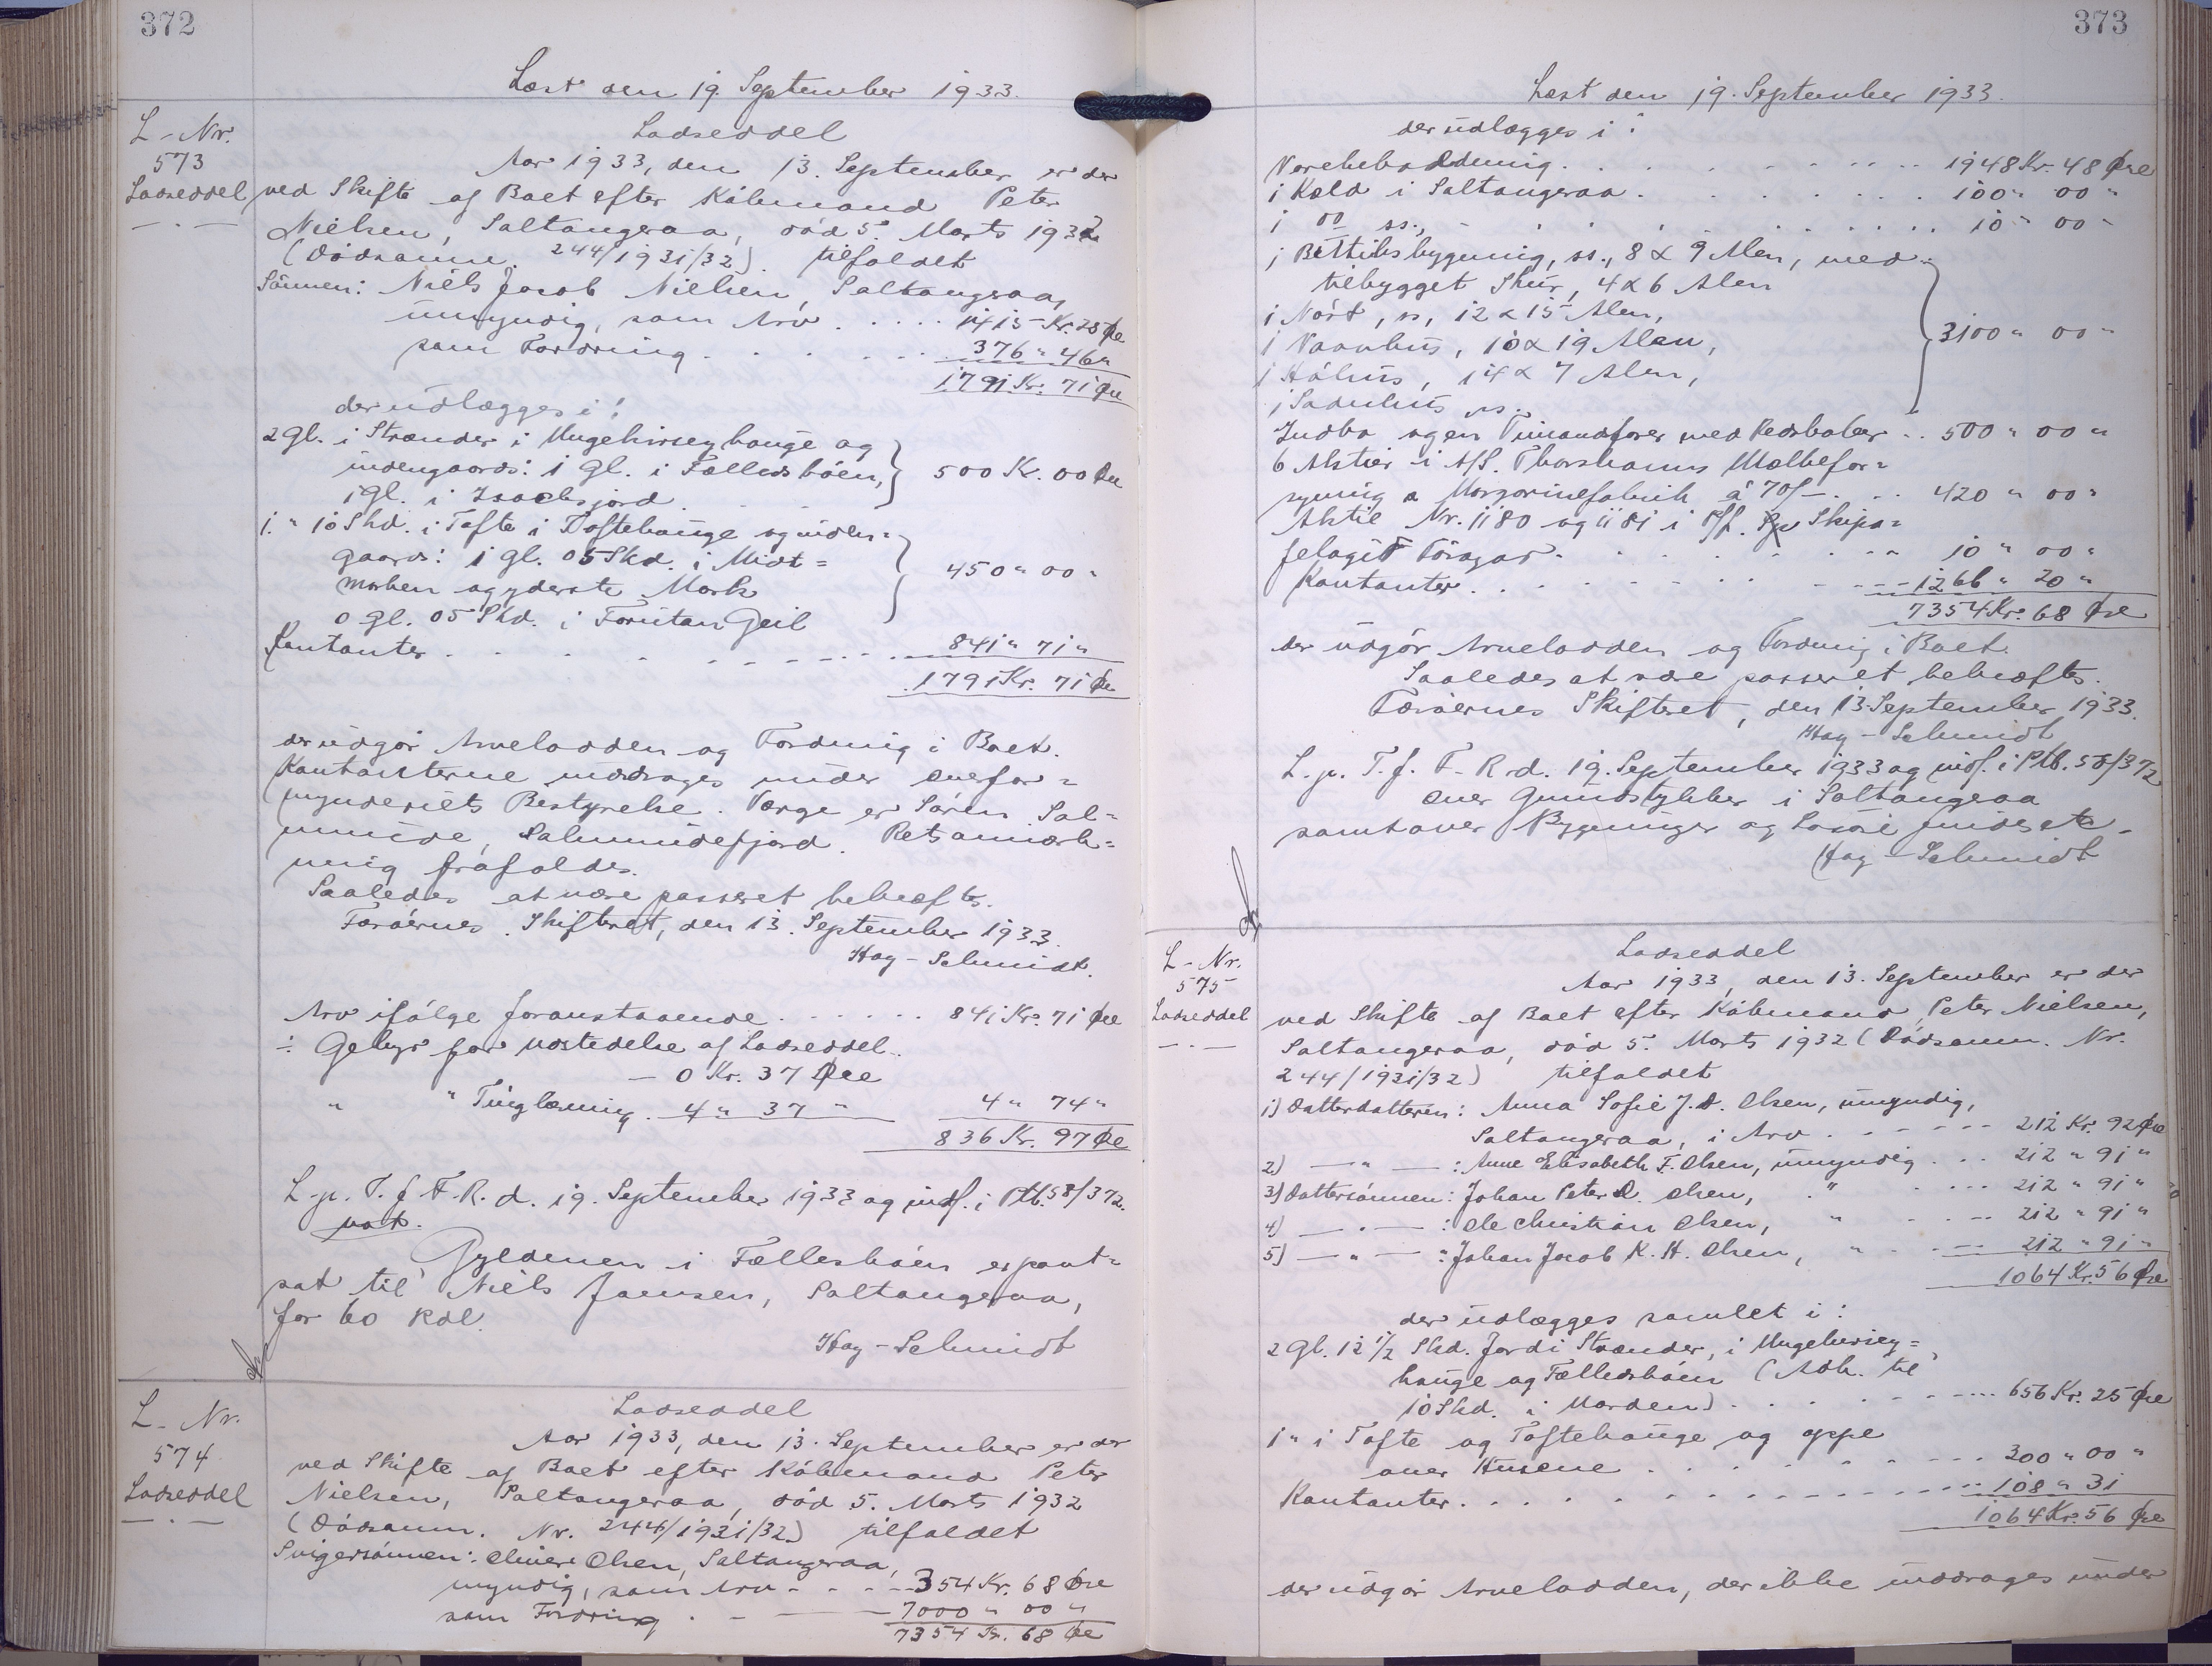 372
Læst den 19. September 1933.
L-Nr.
573
Lodseddel
Lodseddel
Aar 1933, den 13. September er der
ved Skifte af Boet efter Købmand Peter
Nielsen, Saltangeraa, død 5. Marts 1932
(Dødsanm. 244/1931/32) tilfaldet
Sønnen: Niels Jacob Nielsen, Saltangeraa,
umyndig, som Arv ..... 1415 Kr. 25 Øre
som Fordring ..... 376 " 46 "
1791 Kr. 71 Øre
der udlægges i:
2 Gl. i Strænder i Ungehirseyhauge og
indengaards: 1 Gl. i Fælledsbøen,
1 Gl. i Isacksjord
500 Kr. 00 Øre
1 " 10 Skd. i Tofte i Toftehauge og inden=
gaards: 1 gl. 05 Skd. i Midt=
marken og yderste Mark
0 gl. 05 Skd. i Forutan Geil
450 " 00 "
Kontanter ..... 841 " 71 "
1791 Kr. 71 Øre
der udgør Arvelodden og Fordring i Boet.
Kontanterne inddrages under Overfor=
mynderiets Bestyrelse. Værge er Sören Sal=
munde, Salmundefjord. Retsanmærk=
ning frafaldes.
Saaledes at være passeret bekræftes.
Færøernes Skifteret, den 13. September 1933.
Hag-Schmidt.
Arv ifølge foranstaaende ...... 841 Kr. 71 Øre
÷ Gebyr for udstedelse af Lodseddel ..
— 0 Kr. 37 Øre
" " Tinglæsning. 4 " 37 " 4 " 74 "
836 Kr. 97 Øre
L. p. T. f. F. R. d. 19. September 1933 og indf. i Ptb. 58/372.
not.
Gyldenen i Fællesbøen er pant=
sat til Niels Jansen, Saltangeraa,
for 60 Rdl.
Hag-Schmidt
L-Nr.
574
Lodseddel
Lodseddel
Aar 1933, den 13. September er der
ved Skifte af Boet efter Købmand Peter
Nielsen, Saltangeraa, død 5. Marts 1932
(Dødsanm. Nr. 244/1931/32) tilfaldet
Svigersønnen: Oliver Olsen, Saltangeraa,
myndig, som Arv ..... 354 Kr. 68 Øre
som Fordring ..... 7000 " 00 "
7354 Kr. 68 Øre
373
Læst den 19. September 1933.
der udlægges i:
Varebeholdning ..... 1948 Kr. 48 Øre
1 Kold i Saltangeraa ..... 100 " 00 "
1 do ss., ..... 10 " 00 "
1 Buttiksbygning, ss., 8 x 9 Alen, med
tilbygget Skur, 4 x 6 Alen
1 Nøst, ss, 12 x 15 Alen,
1 Vaanhus, 10 x 19 Alen,
1 Høhus, 14 x 7 Alen,
1 Saduhus ss.
3100 " 00 "
Indbo og en Timandfarer med Redskaber .. 500 " 00 "
6 Aktier i A/S. Thorshavns Mælkefor=
syning & Margarinefabrik á 70/- ... 420 " 00 "
Aktie Nr. 1180 og 1181 i P/f. Skipa=
felagið Föroyar ..... 10 " 00 "
Kontanter ..... 1266 " 20 "
7354 Kr. 68 Øre
der udgør Arvelodden og Fordring i Boet.
Saaledes at være passeret bekræftes.
Færøernes Skifteret, den 13. September 1933.
Hag-Schmidt
L. p. T. f. F. R. d. 19. September 1933 og indf. i Ptb. 58/372
over Grundstykker i Saltangeraa
samt over Bygninger og Løsøre findes ete.
Hag-Schmidt
L-Nr.
575
Lodseddel
Lodseddel
Aar 1933, den 13. September er der
ved Skifte af Boet efter Købmand Peter Nielsen,
Saltangeraa, død 5. Marts 1932 (Dødsanm. Nr.
244/1931/32) tilfaldet
1) Datterdatteren: Anna Sofie J. D. Olsen, umyndig,
Saltangeraa, i Arv ..... 212 Kr. 92 Øre
2) — " — : Anne Elisabeth F. Olsen, umyndig ... 212 " 91 "
3) Dattersønnen: Johan Peter D. Olsen, " ... 212 " 91 "
4) — " — : Ole Christian Olsen, " ... 212 " 91 "
5) — " — : Johan Jacob K. H. Olsen, " ... 212 " 91 "
1064 Kr. 56 Øre
der udlægges samlet i:
2 Gl. 12 1/2 Skd. Jord i Strænder, i Ungehirsey=
hauge og Fælledsbøen (Adk. til
10 Skd. i Marken) ..... 656 Kr. 25 Øre
1 " i Tofte og Toftehauge og oppe
over Husene ..... 300 " 00 "
Kontanter ..... 108 " 31
1064 Kr. 56 Øre
der udgør Arvelodden, der ikke inddrages under